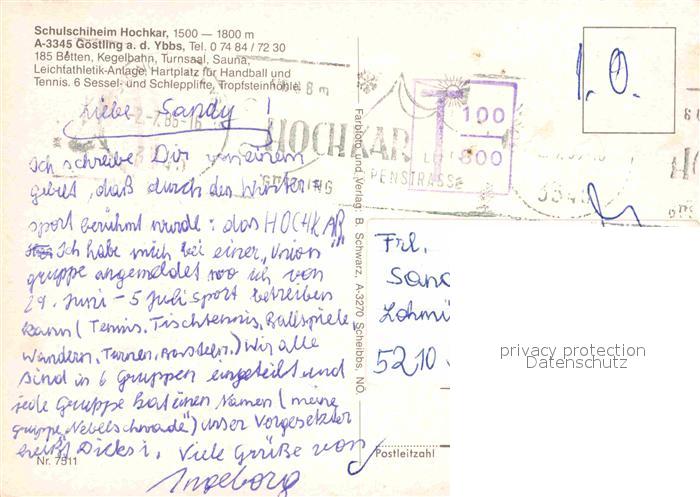 Schulschiheim Hochkar, 1500 — 1800 m
A-3345 Göstling a. d. Ybbs, Tel. 0 74 84 / 72 30
185 Betten, Kegelbahn, Turnsaal, Sauna,
Leichtathletik-Anlage, Hartplatz für Handball und
Tennis. 6 Sessel- und Schlepplifte, Tropfsteinhöhle.
Liebe Sandy!
Ich schreibe Dir von einem
gebiet, daß durch den Winter-
sport berühmt wurde: das HOCHKAR
Ich habe mich bei einer "Union"
gruppe angemeldet wo ich von
29. Juni - 5 Juli Sport betreiben
kann (Tennis, Tischtennis, Ballspiele,
Wandern, Turnen, Basteln.) Wir alle
sind in 6 Gruppen eingeteilt und
jede Gruppe hat einen Namen (meine
gruppe "Nebelschwade") unser Vorgesetzter
heißt Dicksi. Viele Grüße von
Ingeborg
Nr. 7511
Farbfoto und Verlag: B. Schwarz, A-3270 Scheibbs, NÖ.
HOCHKAR
GÖSTLING
PENSTRASSE
T
100
800
I.O.
Frl.
Sand
Lohmi
5210
Postleitzahl
privacy protection
Datenschutz